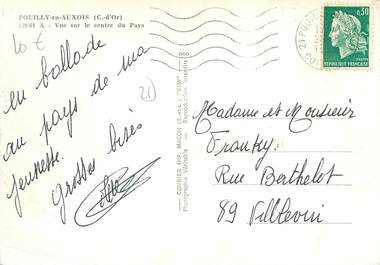 POUILLY-en-AUXOIS (C.-d'Or)
A - Vue sur le centre du Pays
10 €
en ballade
au pays de ma
jeunesse.
grosses bises
21
COMBIER IMP. MACON (S.-et-L.) "CIM"
Photographie Véritable - Reproduction interdite
21 POUI
0,30
REPUBLIQUE FRANÇAISE
Madame et Monsieur
Franky
Rue Berthelot
89 Villevin